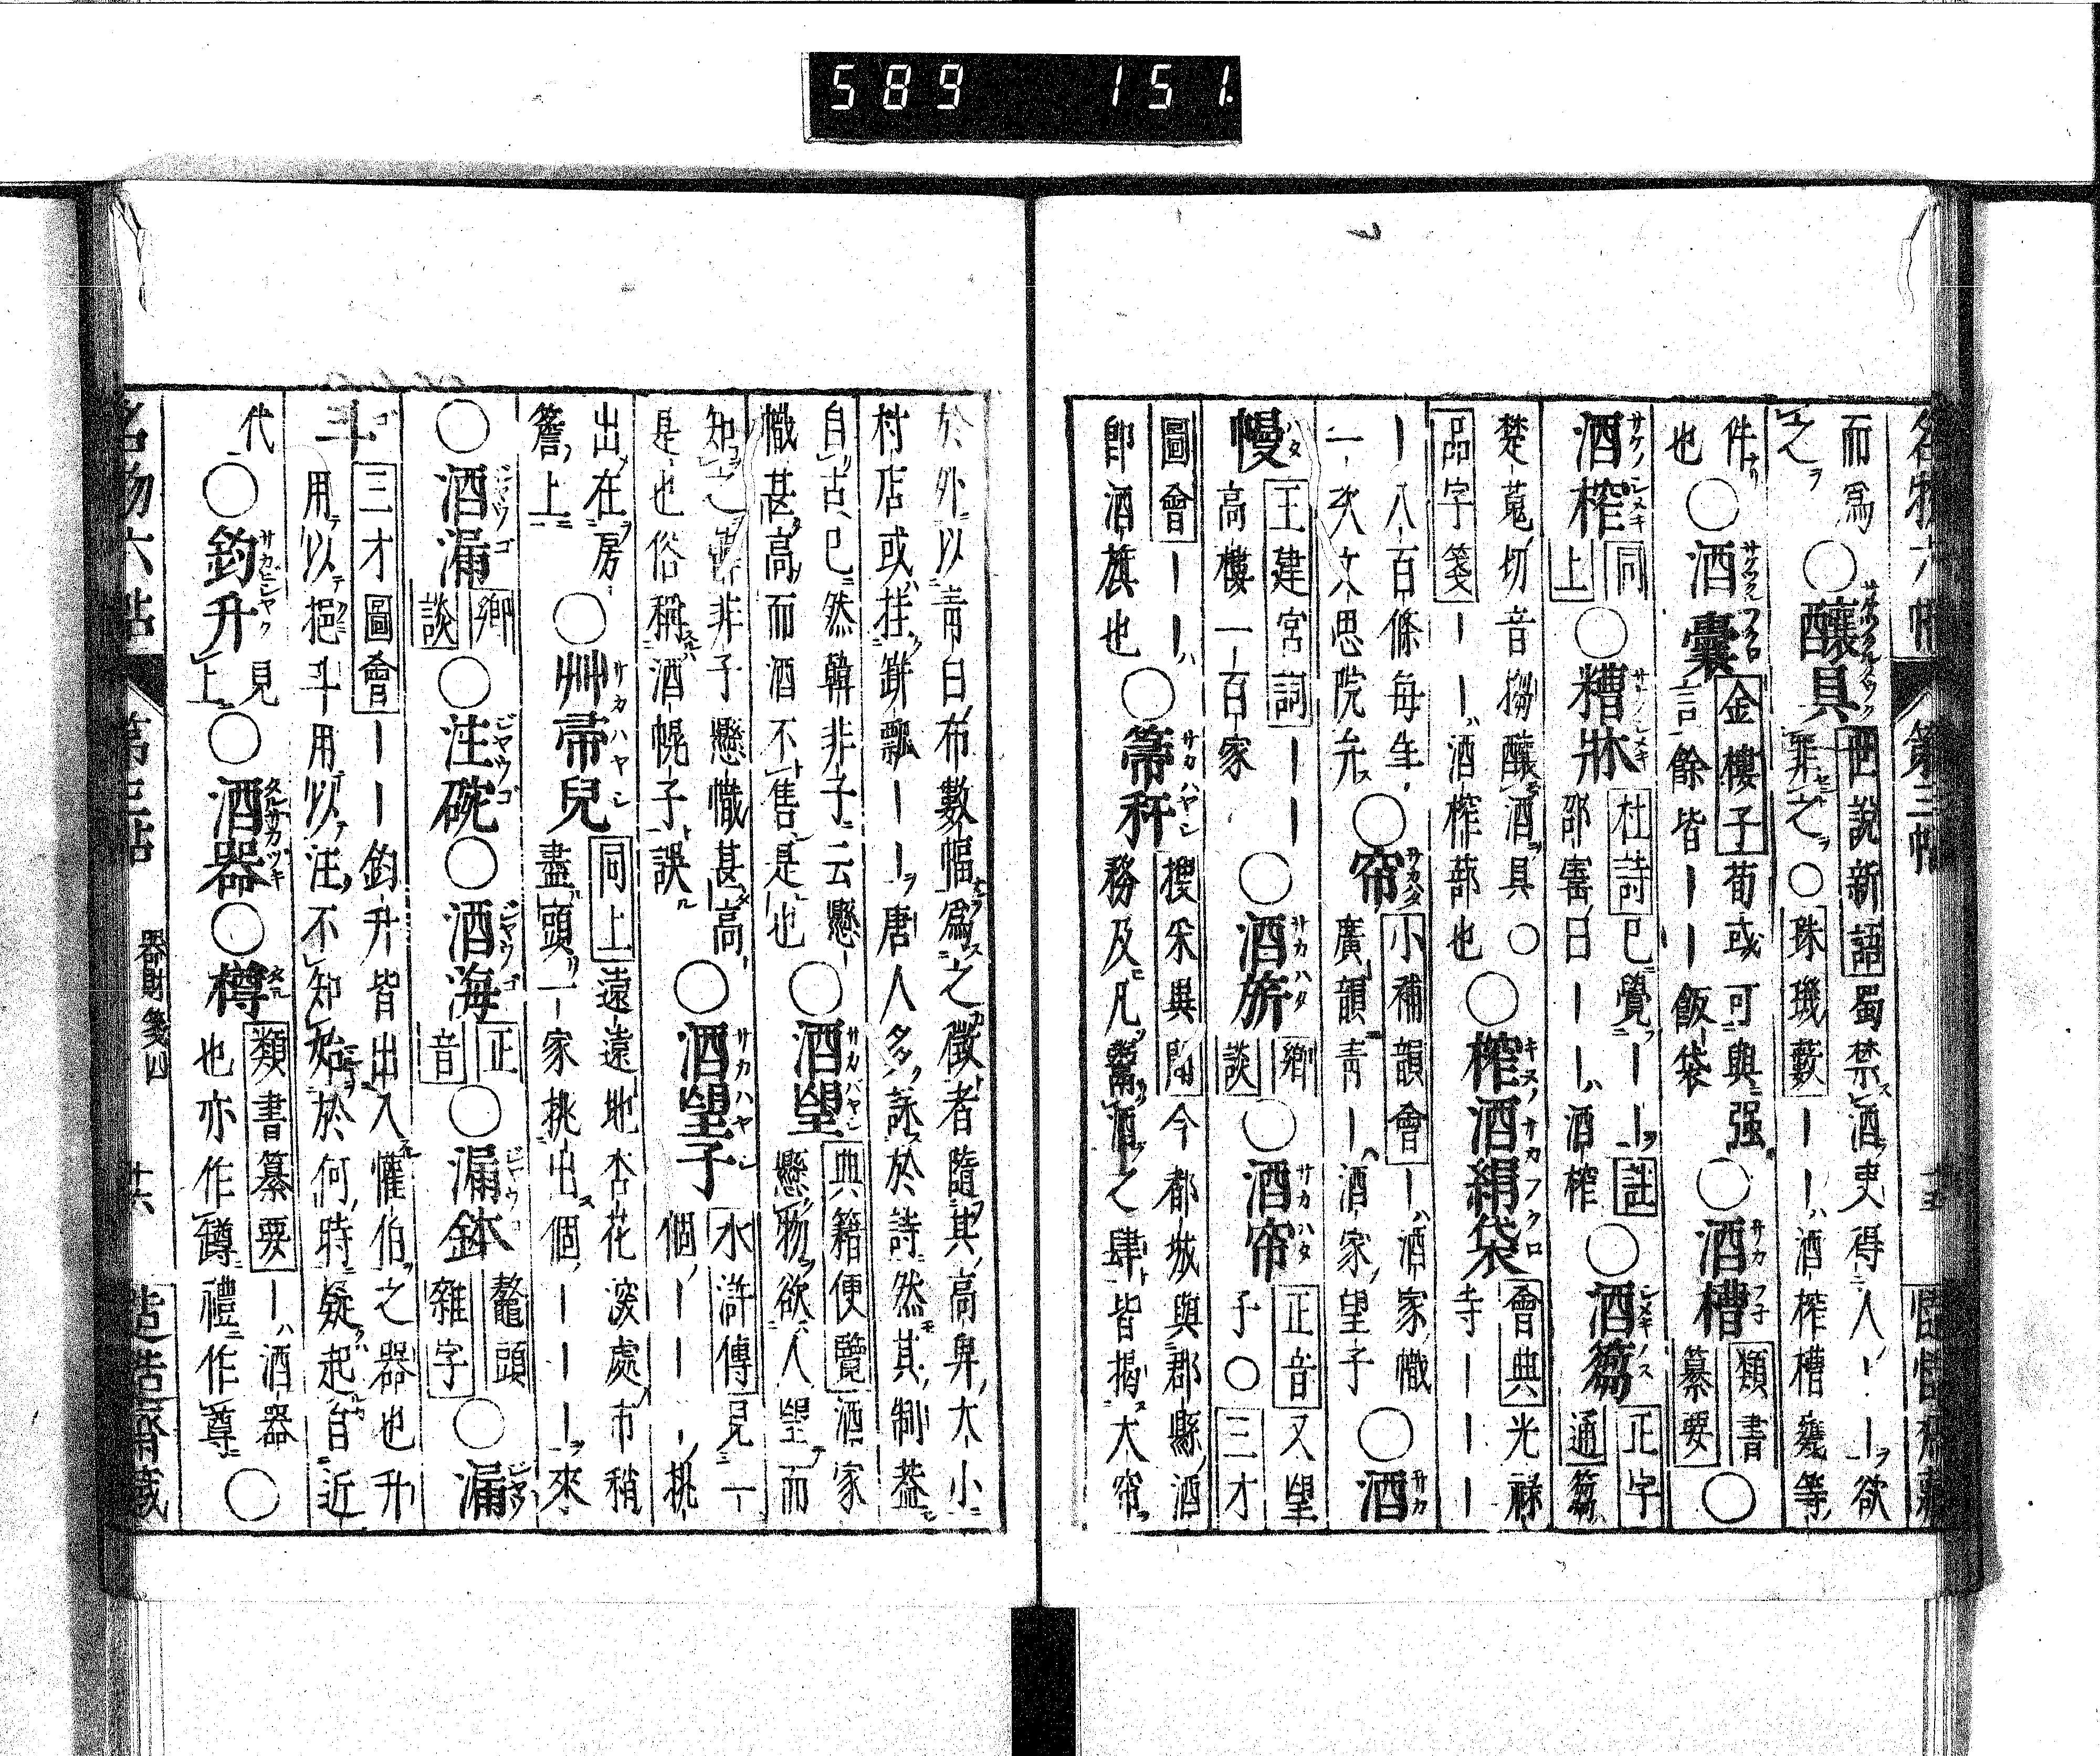 589 151.
名物六帖 第三帖
而爲 ○釀具 世說新語 蜀禁酒吏得人｜｜欲
之 罪之○珠璣藪｜｜酒榨槽甕等
件 ○酒囊 金樓子 荀或可與强 ○酒槽 類書
也 言餘皆｜｜飯袋 纂要 ○
酒榨 同上 ○糟牀 杜詩 已覺｜｜註 ○酒篘 正字
邵寶曰｜｜酒榨 通 篘
楚蒐切音搊釀酒具○ ○榨酒絹袋 會典 光祿
品字箋｜｜酒榨蔀也 寺｜｜｜｜
｜八百條每年 ○帘 小補韻會｜酒家幟
一次文思院弁 廣韻靑｜酒家望子 ○酒
幔 王建宮詞｜｜ ○酒旆 鄉談 ○酒帘 正音 又望
高樓一百家 子○三才
圖會｜｜ ○箒秤 搜采異聞 今都城與郡縣酒
卽酒旗也 務及凡鬻酒之肆皆揭大帘
於外以靑白布數幅爲之微者隨其高卑大小
村店或挂缾瓢｜｜唐人多詠於詩然其制葢
自古已然韓非子云懸 ○酒望 典籍便覽 酒家
幟甚高而酒不售是也 懸物欲人望而
知之 韓非子懸幟甚高 ○酒望子 水滸傳 見一
是也俗稱酒幌子誤 個｜｜｜挑
出在房 ○艸帚兒 同上 遠遠地杏花深處市稍
簷上 盡頭一家挑出個｜｜｜來
○酒漏 鄉談 ○注碗 ○酒海 正音 ○漏鉢 鼇頭雜字 ○漏
斗 三才圖會｜｜鈞升皆出入懽伯之器也升
用以挹斗用以注不知始於何時疑起自近
代 ○鈞升 見上 ○酒器 ○樽 類書纂要｜酒器
也亦作罇禮作尊 ○
器財箋四 十六